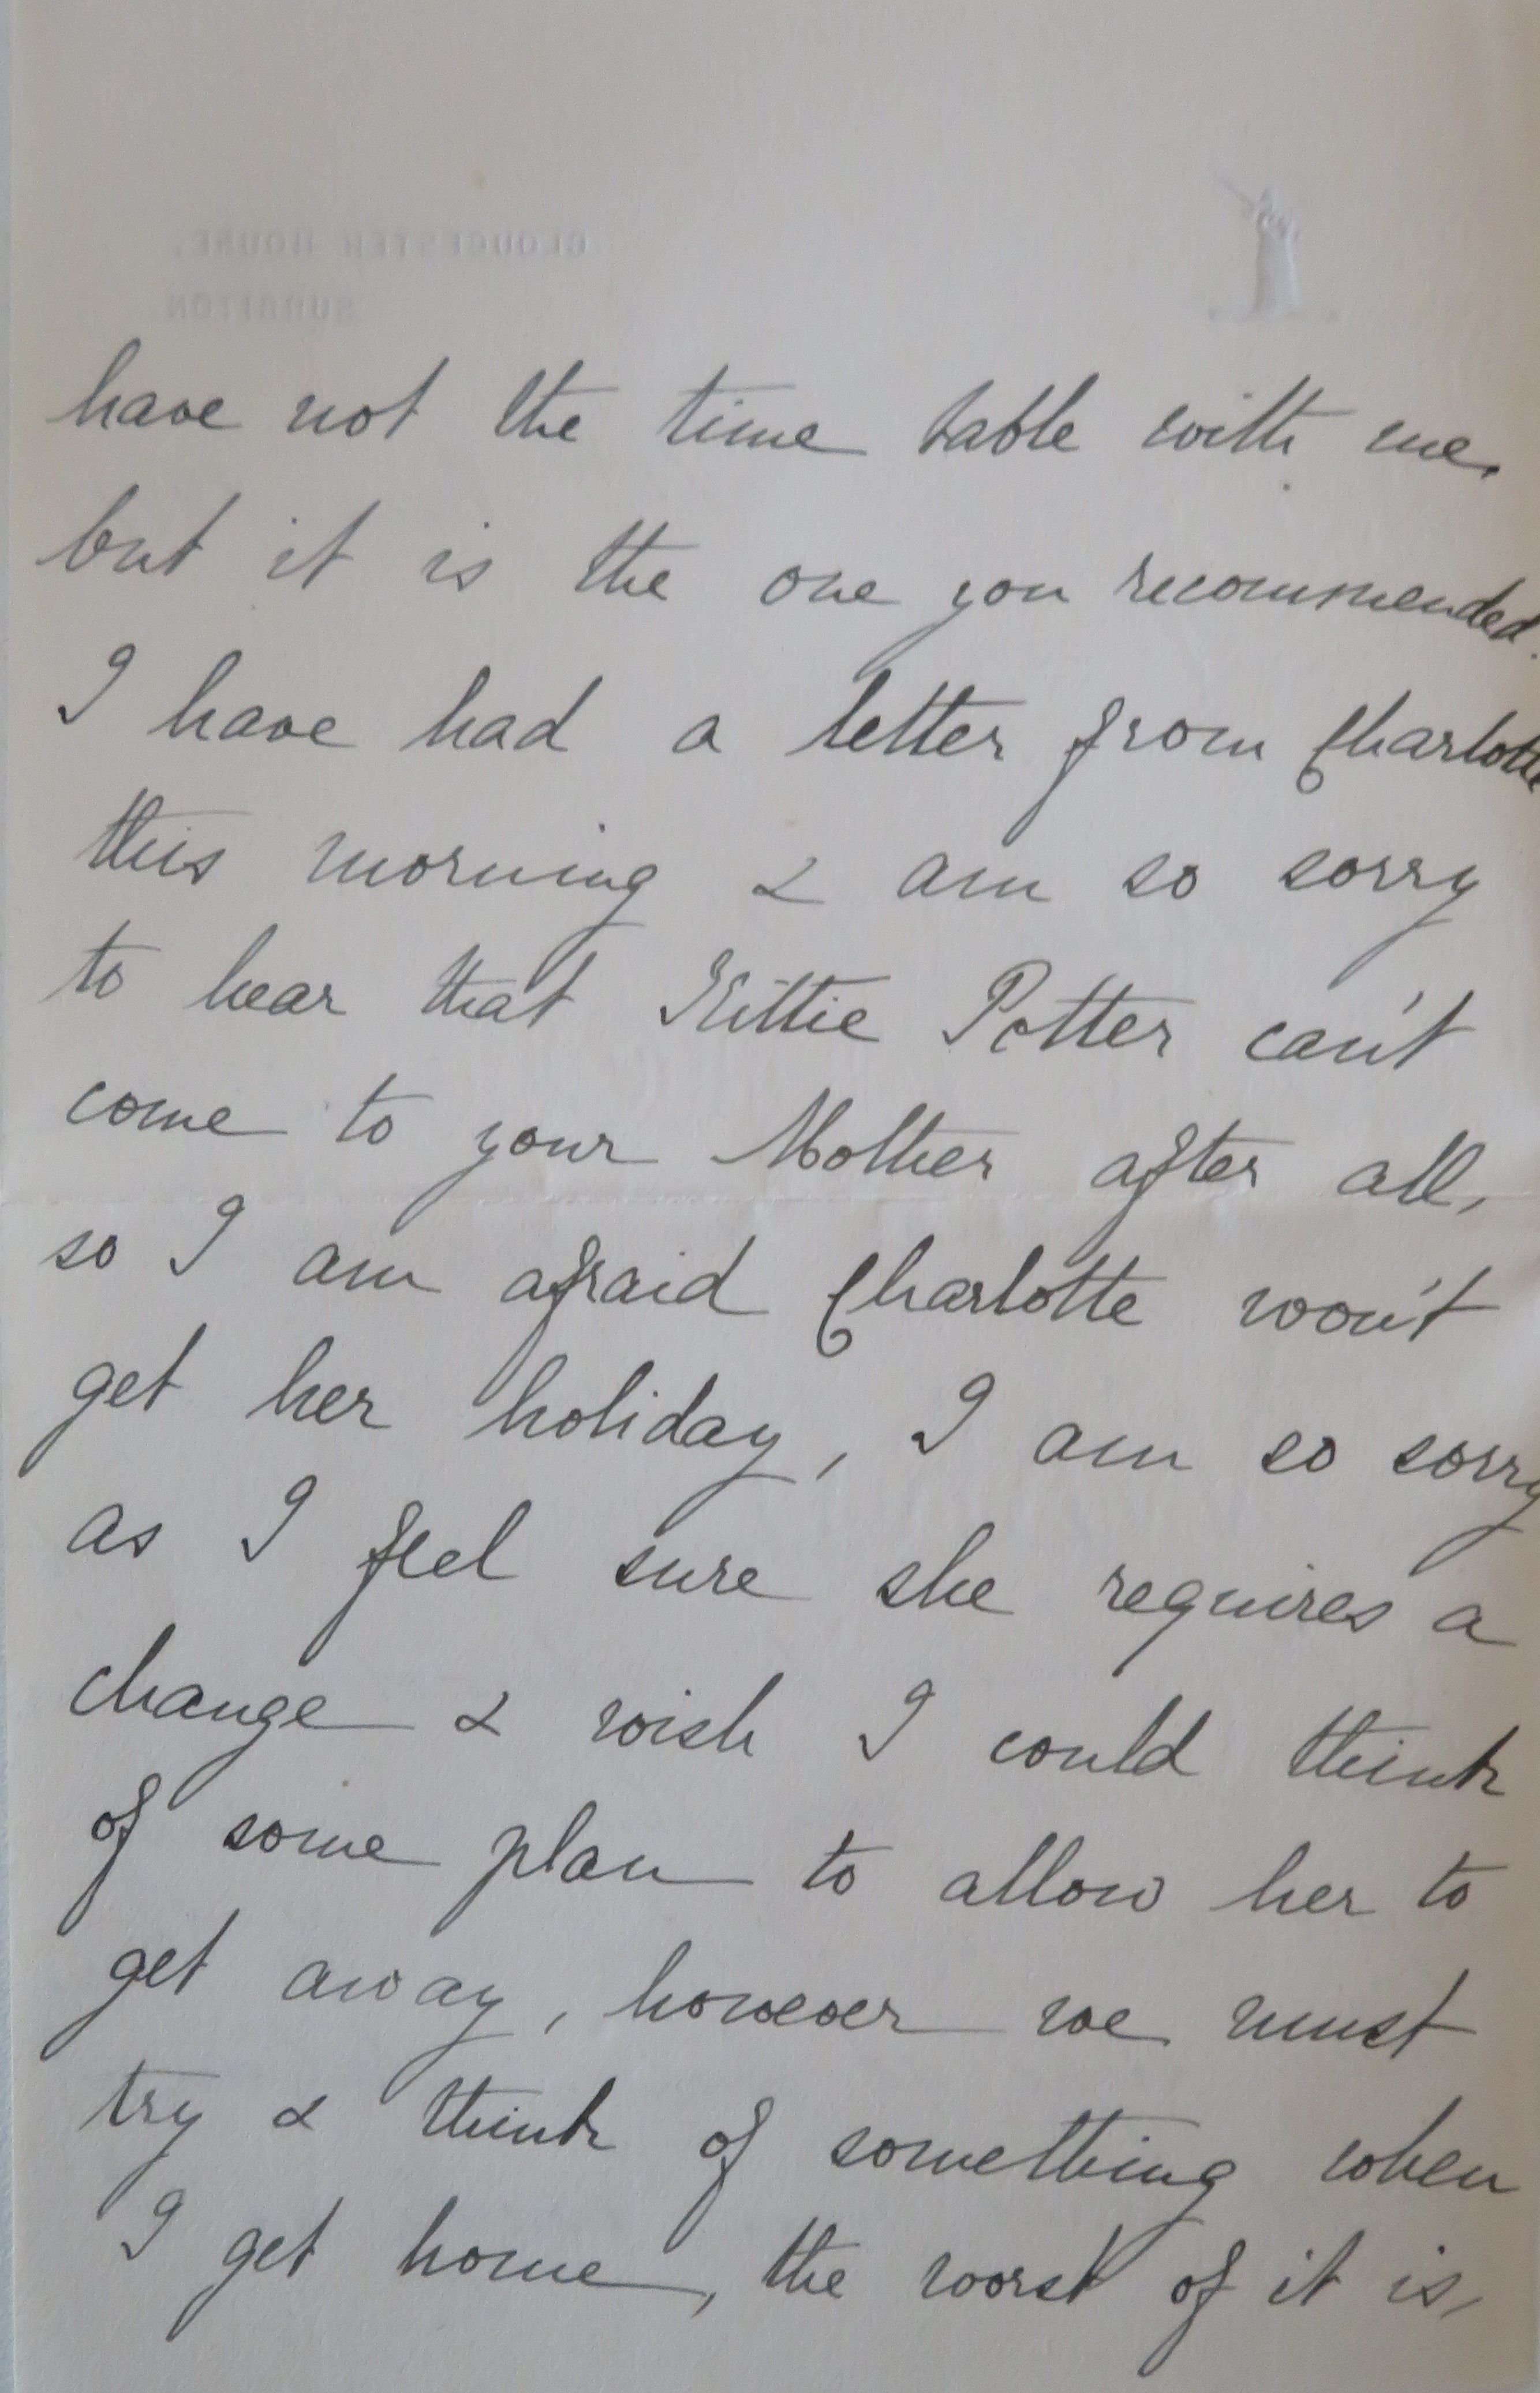 GLOUCESTER HOUSE,
SURBITON.
have not the time table with me,
but it is the one you recommended.
I have had a letter from Charlotte
this morning & am so sorry
to hear that Kittie Potter can't
come to your Mother after all,
so I am afraid Charlotte won't
get her holiday, I am so sorry
as I feel sure she requires a
change & wish I could think
of some plan to allow her to
get away, however we must
try & think of something when
I get home, the worst of it is,